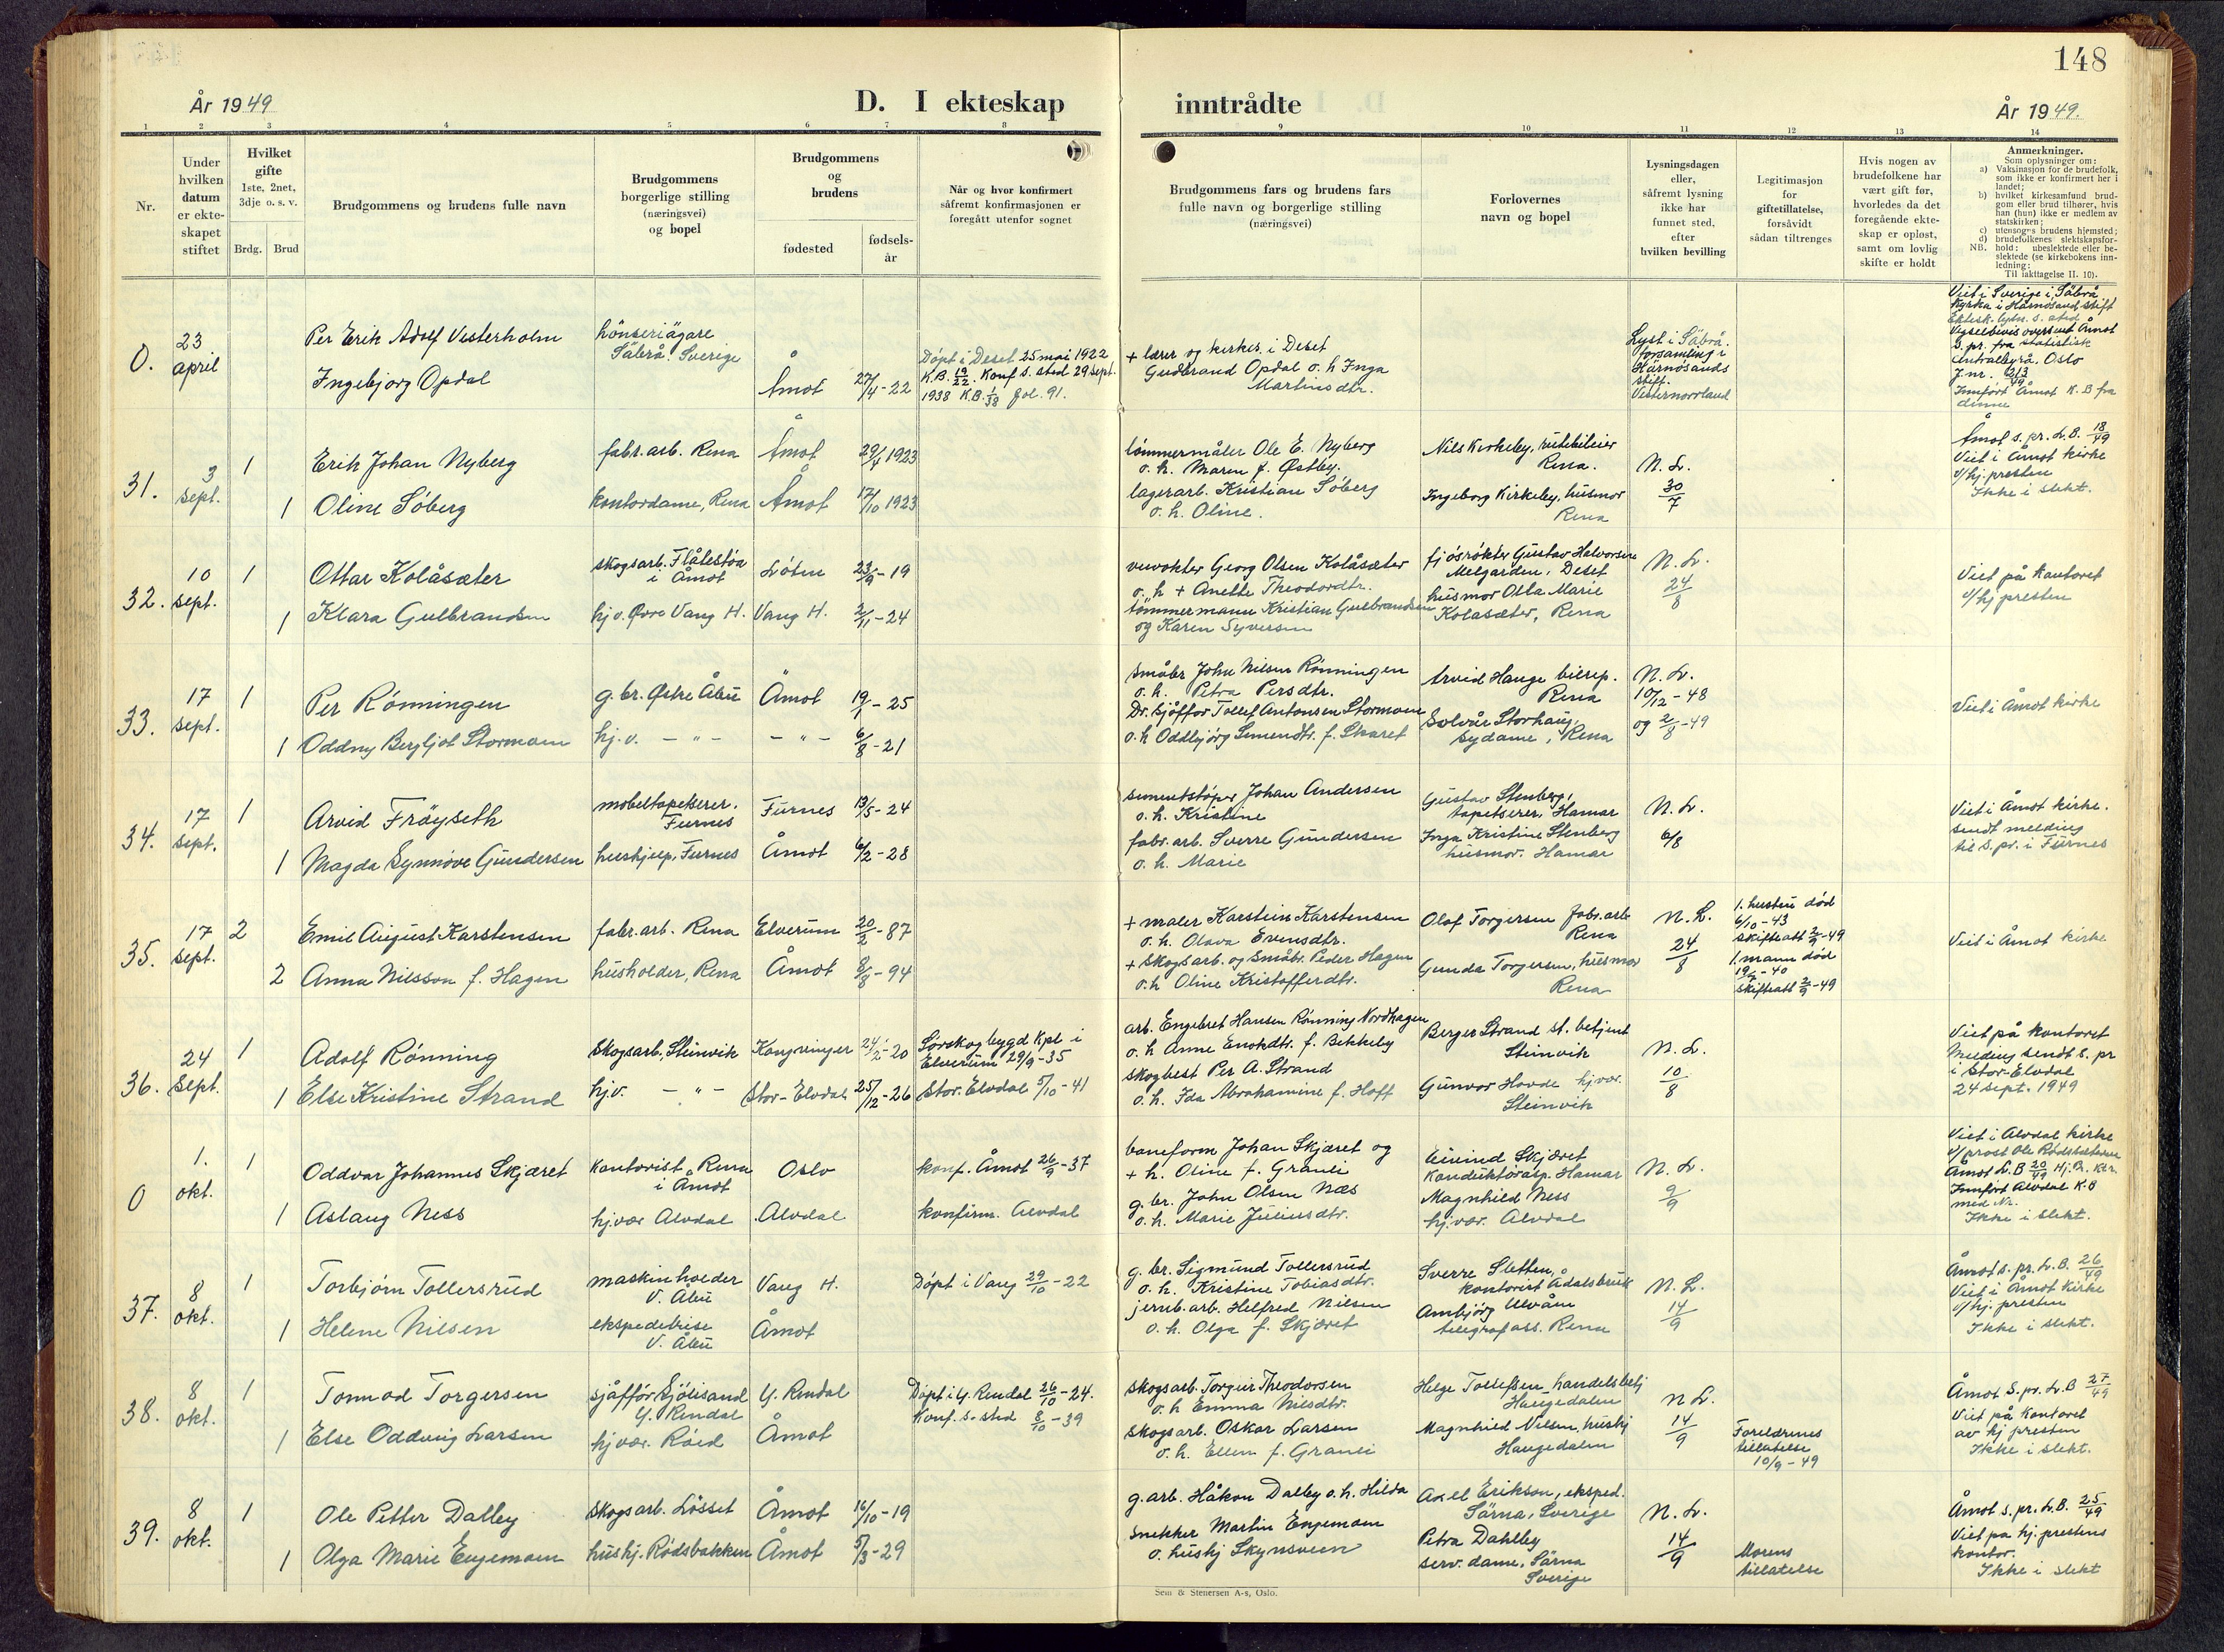 148
År 1949
D. I ekteskap
inntrådte
År 1949.
1 2 3 4 5 6 7 8 9 10 11 12 13 14
Nr.
Under
hvilken
datum
er ekte-
skapet
stiftet
Hvilket
gifte
1ste, 2net,
3dje o. s. v.
Brdg. Brud
Brudgommens og brudens fulle navn
Brudgommens
borgerlige stilling
(næringsvei)
og bopel
Brudgommens
og
brudens
fødested
fødsels-
år
Når og hvor konfirmert
såfremt konfirmasjonen er
foregått utenfor sognet
Brudgommens fars og brudens fars
fulle navn og borgerlige stilling
(næringsvei)
Forlovernes
navn og bopel
Lysningsdagen
eller,
såfremt lysning
ikke har
funnet sted,
efter
hvilken bevilling
Legitimasjon
for
giftetillatelse,
forsåvidt
sådan tiltrenges
Hvis nogen av
brudefolkene har
vært gift før,
hvorledes da det
foregående ekte-
skap er opløst,
samt om lovlig
skifte er holdt
Anmerkninger.
Som oplysninger om:
a) Vaksinasjon for de brudefolk,
som ikke er konfirmert her i
landet;
b) hvilket kirkesamfund brud-
gom eller brud tilhører, hvis
han (hun) ikke er medlem av
statskirken;
c) utensogns brudens hjemsted;
d) brudefolkenes slektskapsfor-
hold: ubeslektede eller be-
slektede (se kirkebokens inn-
ledning:
NB. Til iakttagelse II. 10).
0.
23
april
Per Erik Adolf Vesterholm
Ingebjorg Opdal
hönseriägare
Säbrå. Sverige
Åmot
27/4-22
Döpt i Deset 25 mai 1922
K.B. 19/22. Konf s. sted 29 sept.
1938 K.B. 1/38 fol. 91.
+ lærer og kirkes. i Deset
Gudbrand Opdal o. h Inga
Martinsdtr.
Lyst i Säbrå.
forsamling i
Härnösands
stift.
Västernorrland
Viet i Sverige i Säbrå
kyrka i Härnösand stift
Vigselbevis oversent Åmot
s. pr. fra statistisk
centralbyrå. Oslo
J.nr. 213/49
Innført Åmot K.B fra
denne
31.
3
sept.
1
Erik Johan Nyberg
fabr.arb. Rena
Åmot
29/4 1923
1
Oline Søberg
kontordame, Rena
Åmot
17/10 1923
tømmermåler Ole E. Nyberg
o. h. Maren f. Østby.
lagerarb. Kristian Søberg
o. h. Oline.
Nils Kirkeby, rutebileier
Rena.
Ingeborg Kirkeby, husmor
Rena
N. L.
30/7
Åmot s. pr. L.B. 18/49
Viet i Åmot kirke
v/hj. presten
Ikke i slekt.
32.
10
sept.
1
Ottar Kolåsæter
skogsarb. Flåtestøa
i Åmot
Löten
23/9-19
1
Klara Gulbrandsen
hj v. Øvre Vang H.
Vang H.
2/11-24
vevokter Georg Olsen Kolåsæter
o. h + Anette Theodordtr.
tømmermann Kristian Gulbrandsen
og Karen Syversen
fjösrökter Gustav Halvorsen
Melgarden, Deset
husmor Otta Marie
Kolåsæter, Rena
N. L.
24/8
Viet på kontoret
v/hj presten
33.
17
sept.
1
Per Rönningen
g. br. Østre Åbu
Åmot
19/1-25
1
Oddny Bergljot Stormoen
hj. v. - " -
- " -
6/8-21
Småbr John Nilsen Rönningen
o. h. Petra Persdtr.
Dr. sjåffør Tollef Antonsen Stormoen
o. h Oddbjörg Simensdtr. f. Skaret
Arvid Hauge bilrep.
Rena
Solvår Storhaug,
sydame, Rena
N. L.
10/12-48
og 2/8-49
Viet i Åmot kirke
34.
17
sept.
1
Arvid Fröyseth
møbeltapetserer.
Furnes
Furnes
13/5-24
1
Magda Synnöve Gundersen
hushjelp, Furnes
Åmot
6/2-28
sementstøper Johan Andersen
o. h. Kristine
fabr. arb. Sverre Gundersen
o. h. Marie
Gustav Stenberg,
tapetserer, Hamar
Inga Kristine Stenberg
husmor. Hamar
N. L.
6/8
Viet i Åmot kirke.
sendt melding
til s. pr. i Furnes
35.
17
sept.
2
Emil August Karstensen
fabr. arb. Rena
Elverum
20/2-87
2
Anna Nilsson f. Hagen
husholder, Rena
Åmot
8/8-94
+ maler Karstein Karstensen
o. h. Olava Evensdtr.
+ skogsarb. og småbr. Peder Hagen
o. h Oline Kristofferdtr.
Olaf Torgersen fabr. arb
Rena
Gunda Torgersen, husmor
Rena
N. L.
24/8
1. hustru död
6/10-43
skifteatt 2/9-49
1. mann död
19/4-40
skifteatt 2/9-49
Viet i Åmot kirke
36.
24
sept.
1
Adolf Rönning
skogsarb. Steinvik
Kongsvinger
24/2-20
Sørskogbygd Kpl i
Elverum 29/9-35
1
Else Kristine Strand
hj. v. - " -
Stor-Elvdal
25/12-26
Stor. Elvdal 5/10-41
arb. Engebret Hansen Rönning Nordhagen
o. h Anne Enokdtr. f. Bekkeby
skogbest Per A. Strand
o. h. Ida Abrahamine f. Hoff
Berger Strand st. betjent
Steinvik
Gunvor Hovde hj vær.
Steinvik
N. L.
10/8
Viet på kontoret
Melding sendt s. pr
i Stor-Elvdal
24 sept. 1949
0
1.
okt.
1
Oddvar Johannes Skjæret
Kontorist, Rena
i Åmot
Oslo
konf. Åmot 26/9-37
1
Aslaug Ness
hjvær Alvdal
Alvdal
konfirm. Alvdal
baneform Johan Skjæret og
+ h. Oline f. Granli
g. br. John Olsen Næs
o. h. Marie Juliusdtr.
Eivind Skjæret
Kondüktörasp. Hamar
Magnhild Ness
hj. vær. Alvdal
N. L.
9/9
Viet i Alvdal kirke
v/prost Ole Rödsbakken
Åmot L.B 20/49 Hj. Pr. ktr.
Innført Alvdal K.B
med Nr.
Ikke i slekt.
37.
8
okt.
1
Torbjørn Tollersrud
maskinholder
V. Åbu
Vang H.
Döpt i Vang 29/10-22
1
Helene Nilsen
ekspeditrise
V. Åbu
Åmot
g. br. Sigmund Tollersrud
o. h. Kristine Tobiasdtr.
jernb. arb. Helfred Nilsen
o. h. Olga f. Skjæret
Sverre Sletten,
kontorist Ådalsbruk
Ambjörg Ulvåen
telegrafass. Rena
N. L.
14/9
Åmot s. pr. L.B. 26/49
Viet i Åmot kirke
v/hj. presten
Ikke i slekt.
38.
8
okt.
1
Tormod Torgersen
sjåfför Sjölisand
Y. Rendal
Y. Rendal
Döpt i Y. Rendal 26/10-24.
Konf. s. sted 8/10-39
1
Else Oddveig Larsen
hj vær. Röed
Åmot
skogsarb. Torgeir Theodorsen
o. h Emma Nilsdtr.
skogsarb. Oskar Larsen
o. h. Ellen f. Granli
Helge Tollefsen handelsbetj
Haugedalen
Magnhild Nilsen, hushj
Haugedalen
N. L.
14/9
Foreldrenes
tillatelse
10/9-49
Åmot s. pr. L.B 27/49
Viet på kontoret
av hj presten
Ikke i slekt.
39.
8
okt.
1
Ole Petter Dalby
skogsarb. Lösset
Åmot
16/10-19
1
Olga Marie Engemoen
hushj. Rödsbakken
Åmot
5/3-29
g. arb. Håkon Dalby o. h. Hilda
snekker Martin Engemoen
o. hushj Skynsveen
Axel Erikson, eksped.
Särna, Sverige
Petra Dahlby
serv. dame, Särna
Sverige
N. L.
14/9
Morens
tillatelse
Åmot s. pr. L.B. 25/49
Viet på hj. prestens
kontor.
Ikke i slekt
Sem & Stenersen A-s, Oslo.